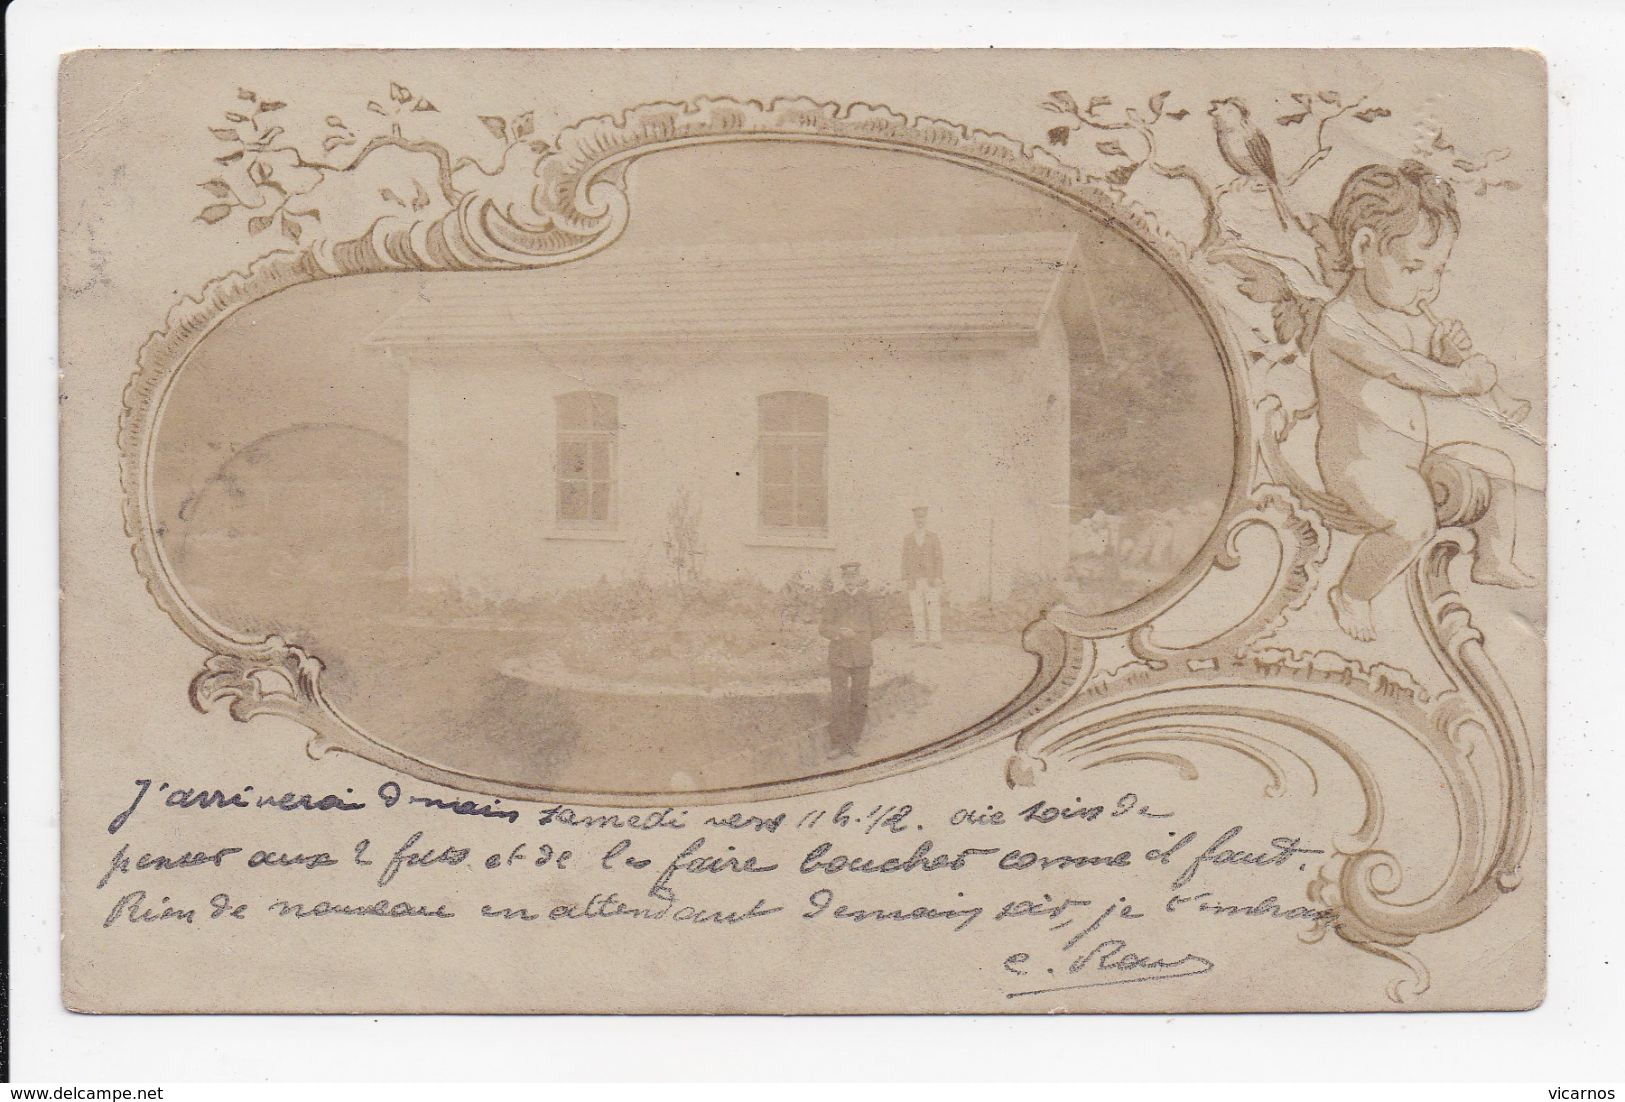 J'arriverai demain samedi vers 11 h. 1/2. aie soin de
penser aux 2 futs et de les faire boucher comme il faut.
Rien de nouveau en attendant demain soir, je t'embrasse
e.
www.delcampe.net
vicarnos